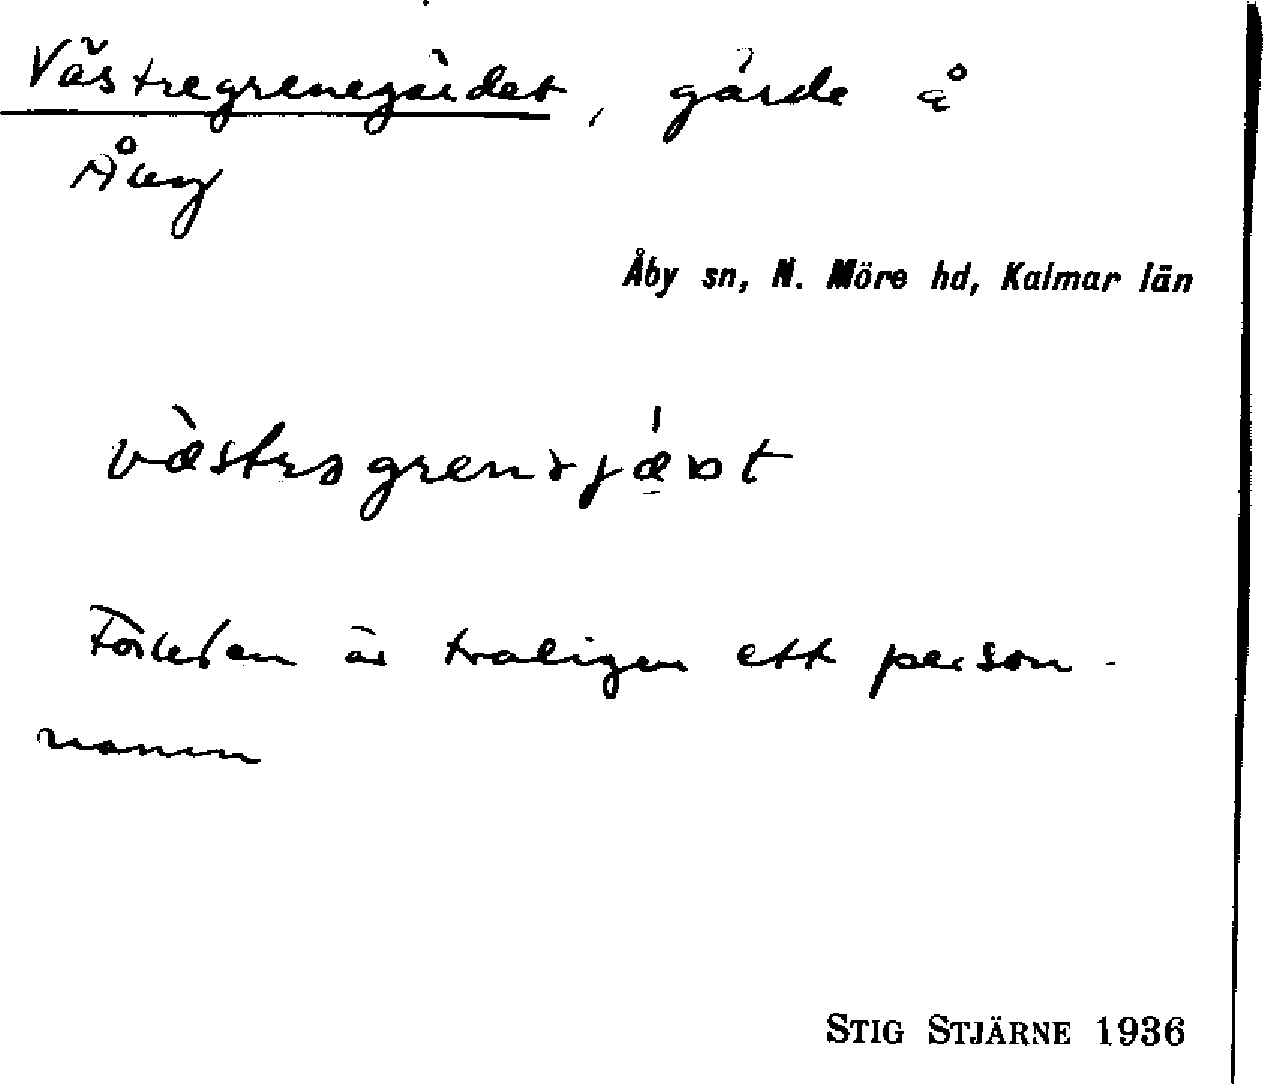 Västregrenegärdet, gärde å
Åby
Åby sn, N. Möre hd, Kalmar län
Förleden är troligen ett person-
namn
STIG STJÄRNE 1936